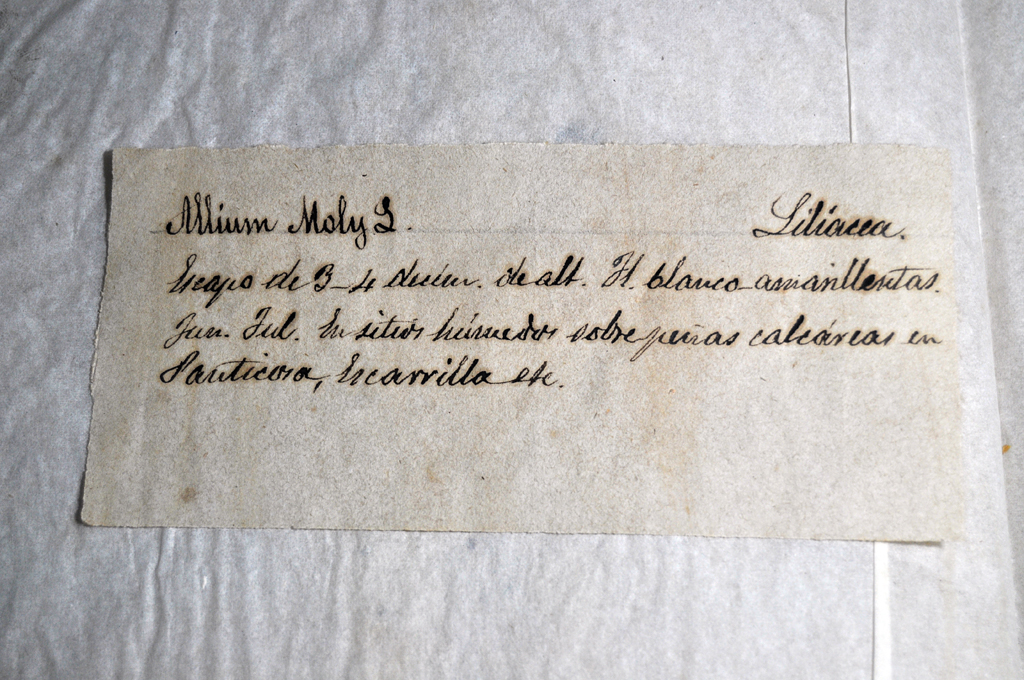 Allium Moly L. Liliacea.
Escapo de 3-4 decím. de alt. Fl. blanco-amarillentas.
Jun. Jul. En sitios húmedos sobre peñas calcáreas en
Panticosa, Escarrilla etc.